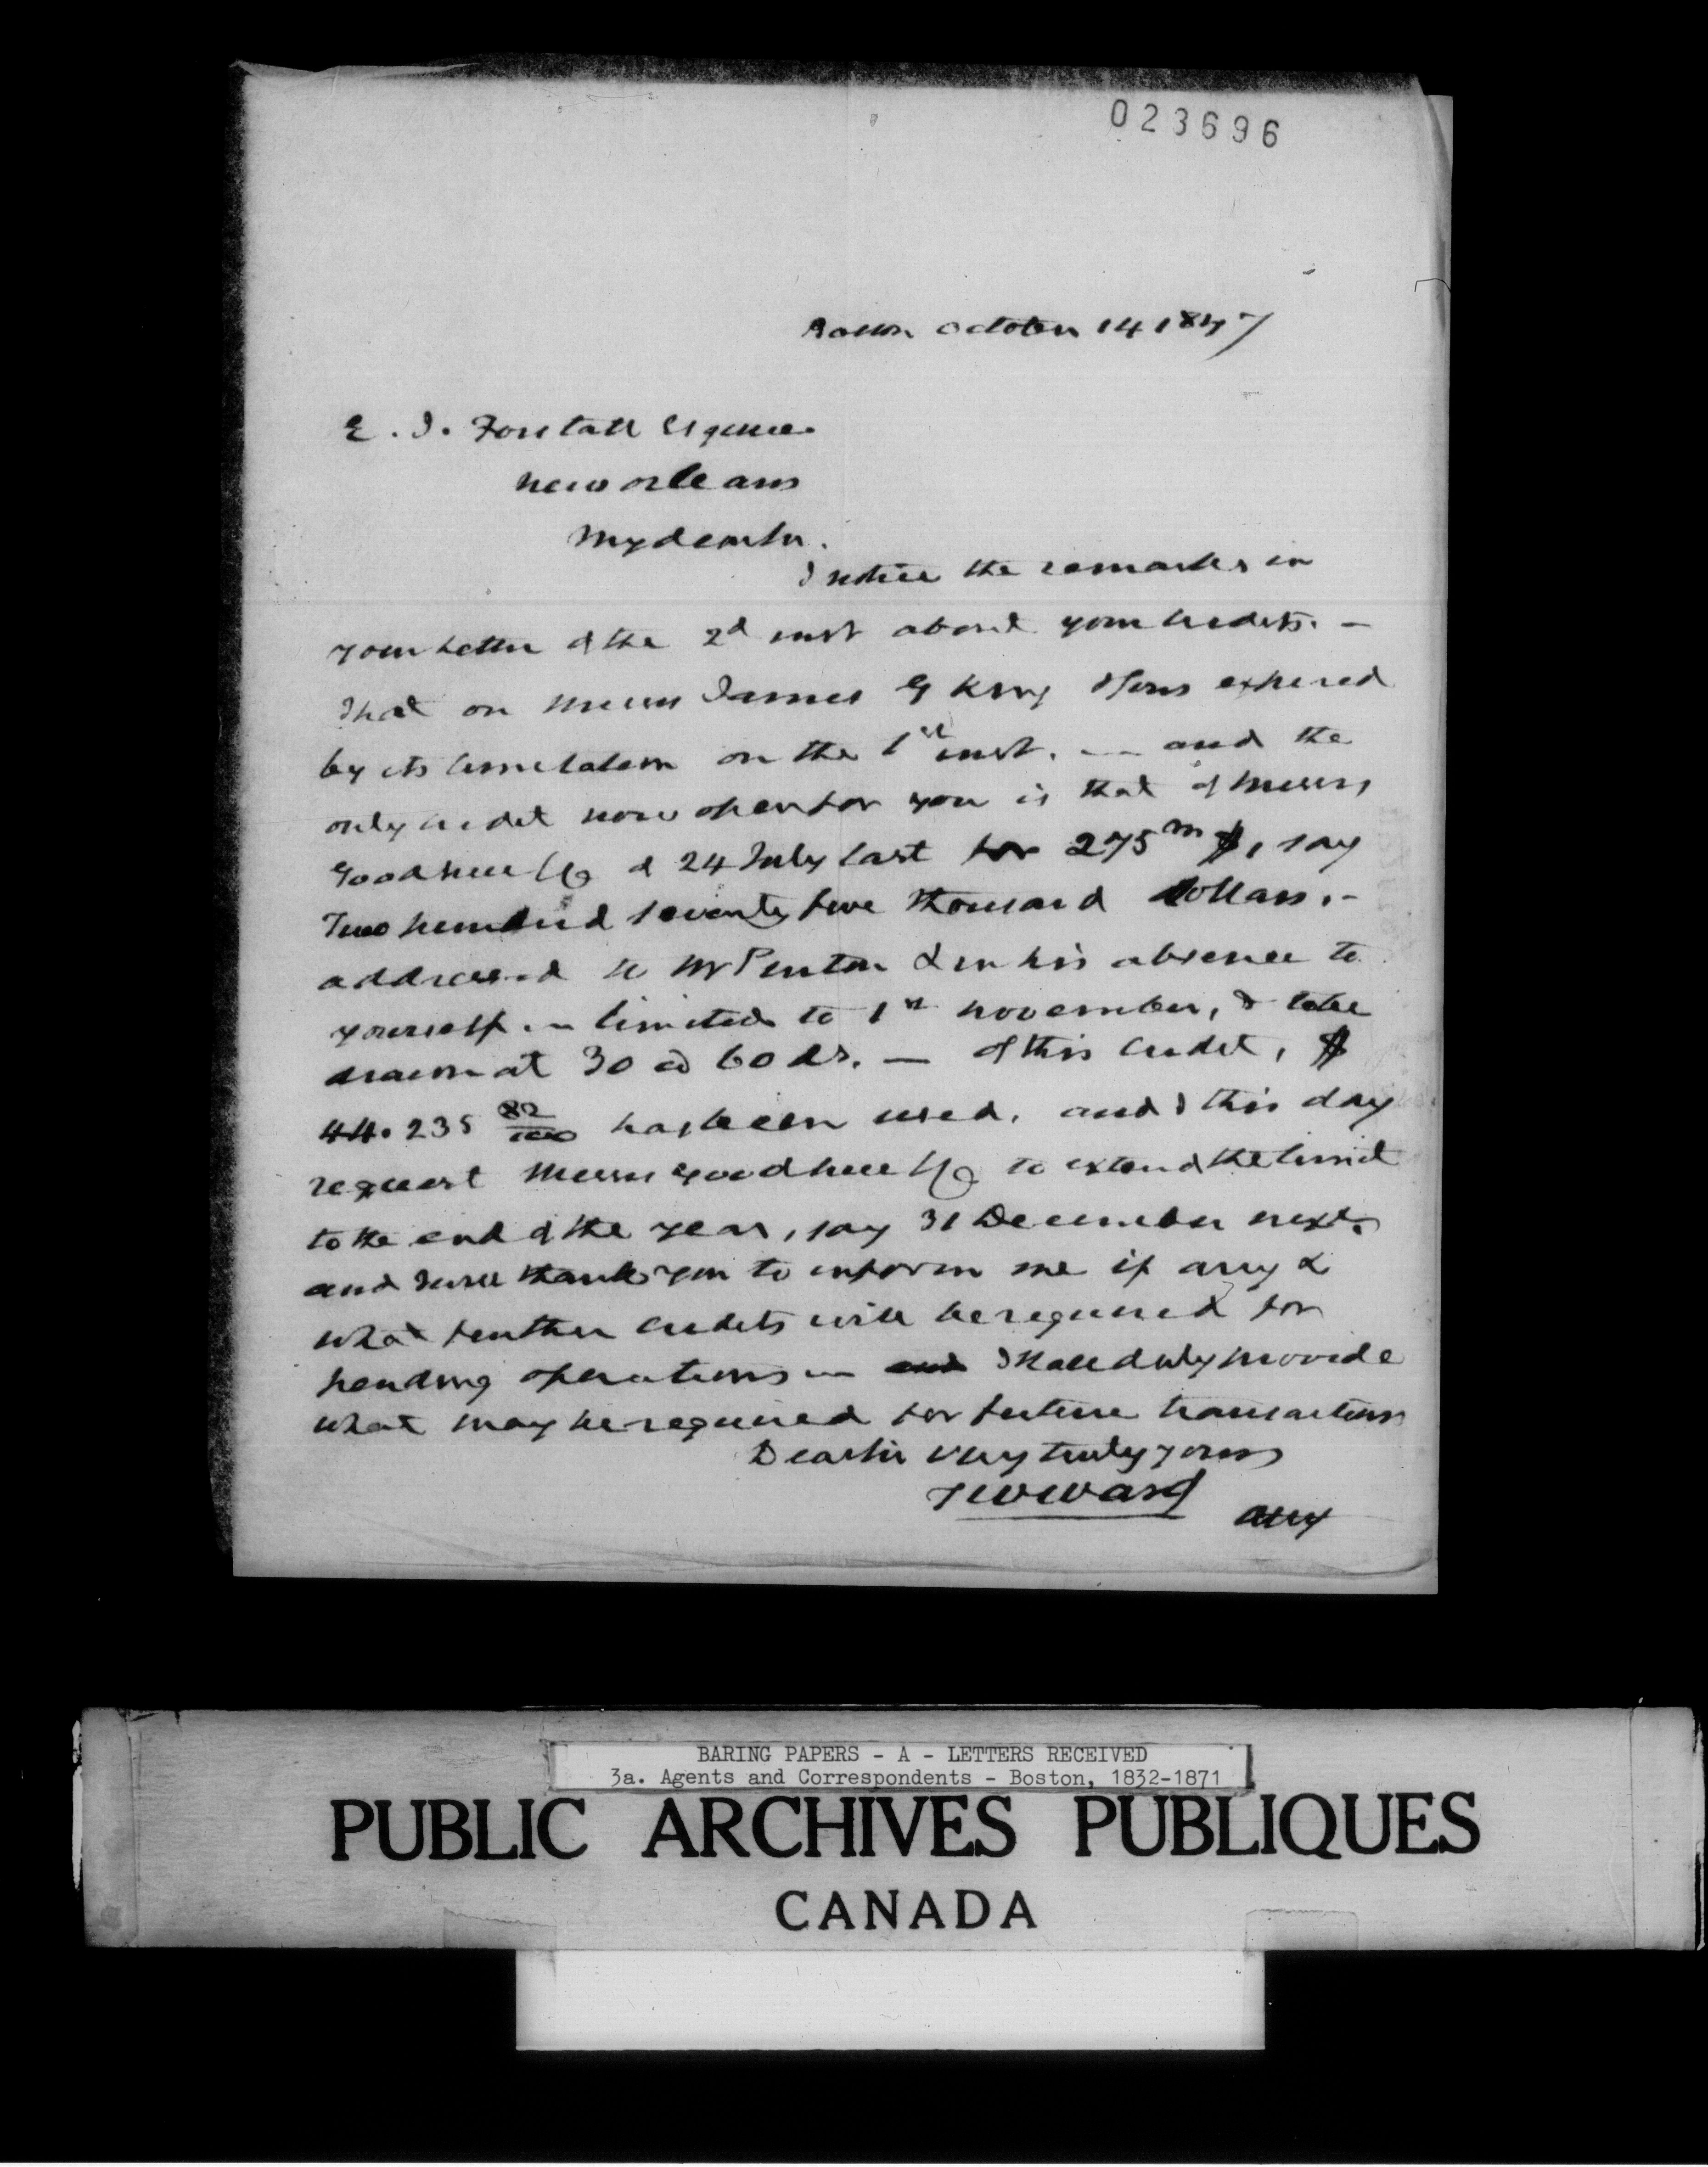 023696
Boston October 14 1847
E. J. Forstall Esquire.
New Orleans
My dear Sir.
I notice the remarks in
your letter of the 2d inst about your credits. —
That on Messrs James G King & Sons expired
by its limitation on the 1st inst. — and the
only credit now open for you is that of Messrs
Goodhue & Co of 24 July last for 275m $, say
Two hundred seventy five thousand dollars. —
addressed to Mr Penton & in his absence to
yourself — limited to 1st November, & to be
drawn at 30 @ 60 ds. — Of this credit, $
44.235 82/100 has been used. and I this day
request Messrs Goodhue & Co to extend the limit
to the end of the year, say 31 December next.
and I will thank you to inform me if any &
what further credits will be required for
pending operations — and I shall duly provide
what may be required for future transactions
Dear Sir very truly yours
T W Ward
BARING PAPERS - A - LETTERS RECEIVED
3a. Agents and Correspondents - Boston, 1832-1871
PUBLIC ARCHIVES PUBLIQUES
CANADA